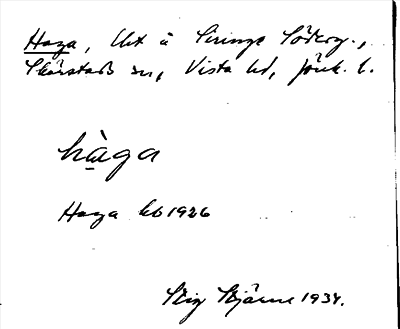 Haga, lht å Siringe Söderg.,
Skärstads sn, Vista hd, Jönk. l.
hàga
Haga kb 1926
Stig Bjärne 1934.